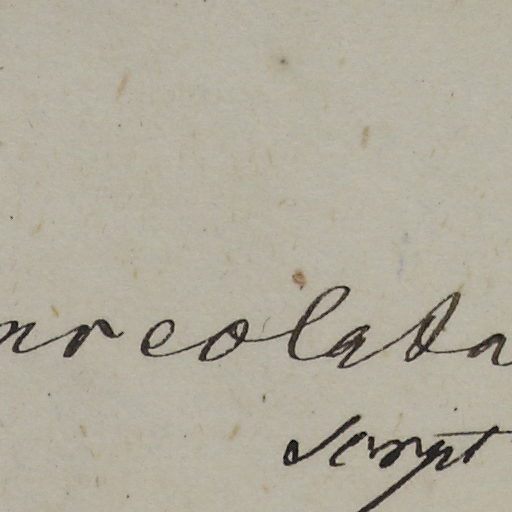 nreolata
Script